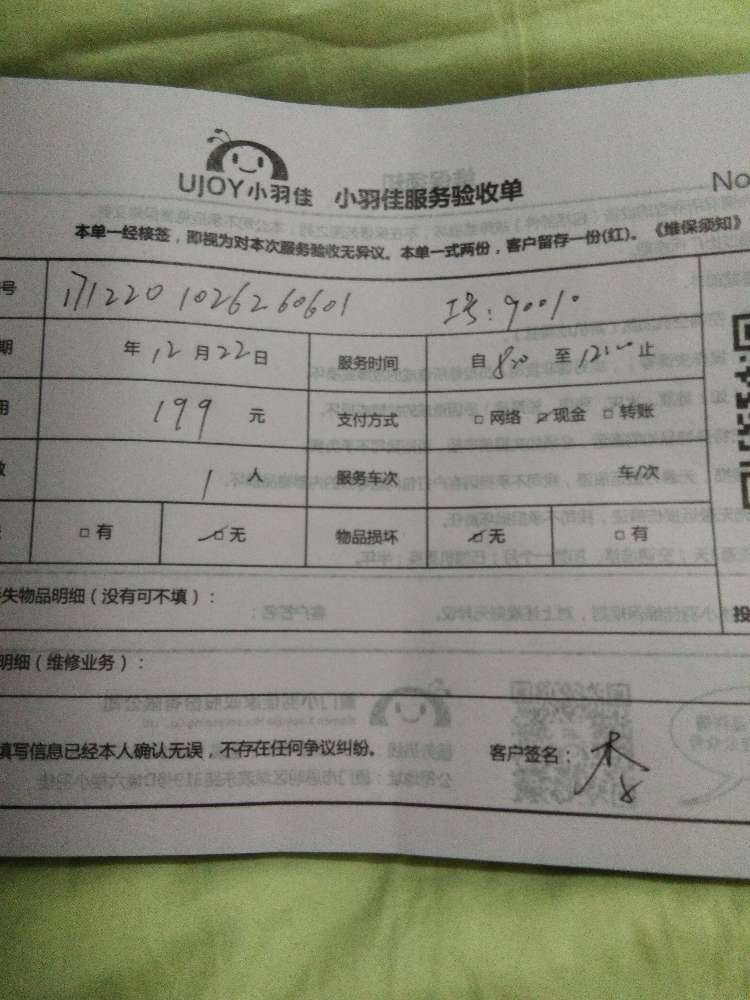 UJOY小羽佳 小羽佳服务验收单
No
本单一经核签，即视为对本次服务验收无异议。本单一式两份，客户留存一份(红)。《维保须知》
号 171220 1026260601 工号：90010
期 年 12 月 22 日 服务时间 自 8:00 至 12:00 止
用 199 元 支付方式 □ 网络 ☑ 现金 □ 转账
数 1 人 服务车次 车/次
□ 有 ☑ 无 物品损坏 ☑ 无 □ 有
失物品明细（没有可不填）：
投
明细（维修业务）：
填写信息已经本人确认无误，不存在任何争议纠纷。 客户签名：